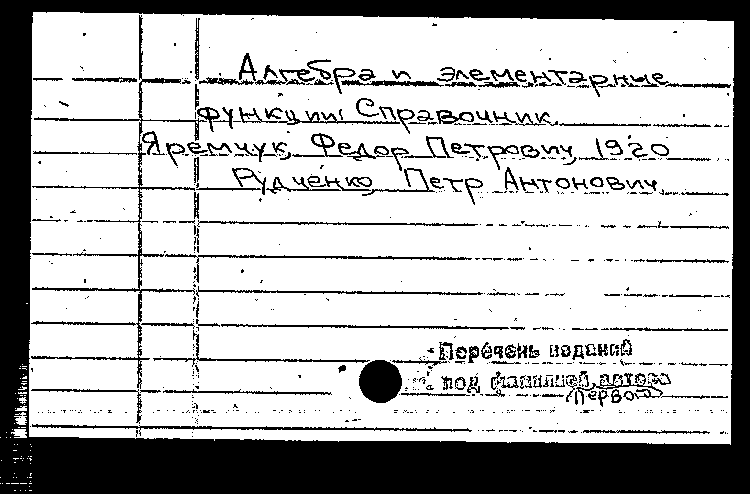 Алгебра и элементарные
функции: Справочник.
Яремчук, Федор Петрович, 1920
Рудченко, Петр Антонович.
Перечень изданий
под фамилией автора
первого